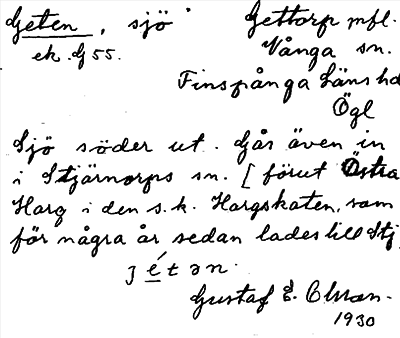 Geten, sjö Gettorp mfl.
ek. G 55. Vånga sn.
Finspånga läns hd
Ögl
Sjö söder ut. Går även in
i Stjärnorps sn. [förut Östra
Harg i den s.k. Hargskaten, som
för några år sedan lades till Stj
ʒ é t ə n.
Gustaf E. Olsson.
1930